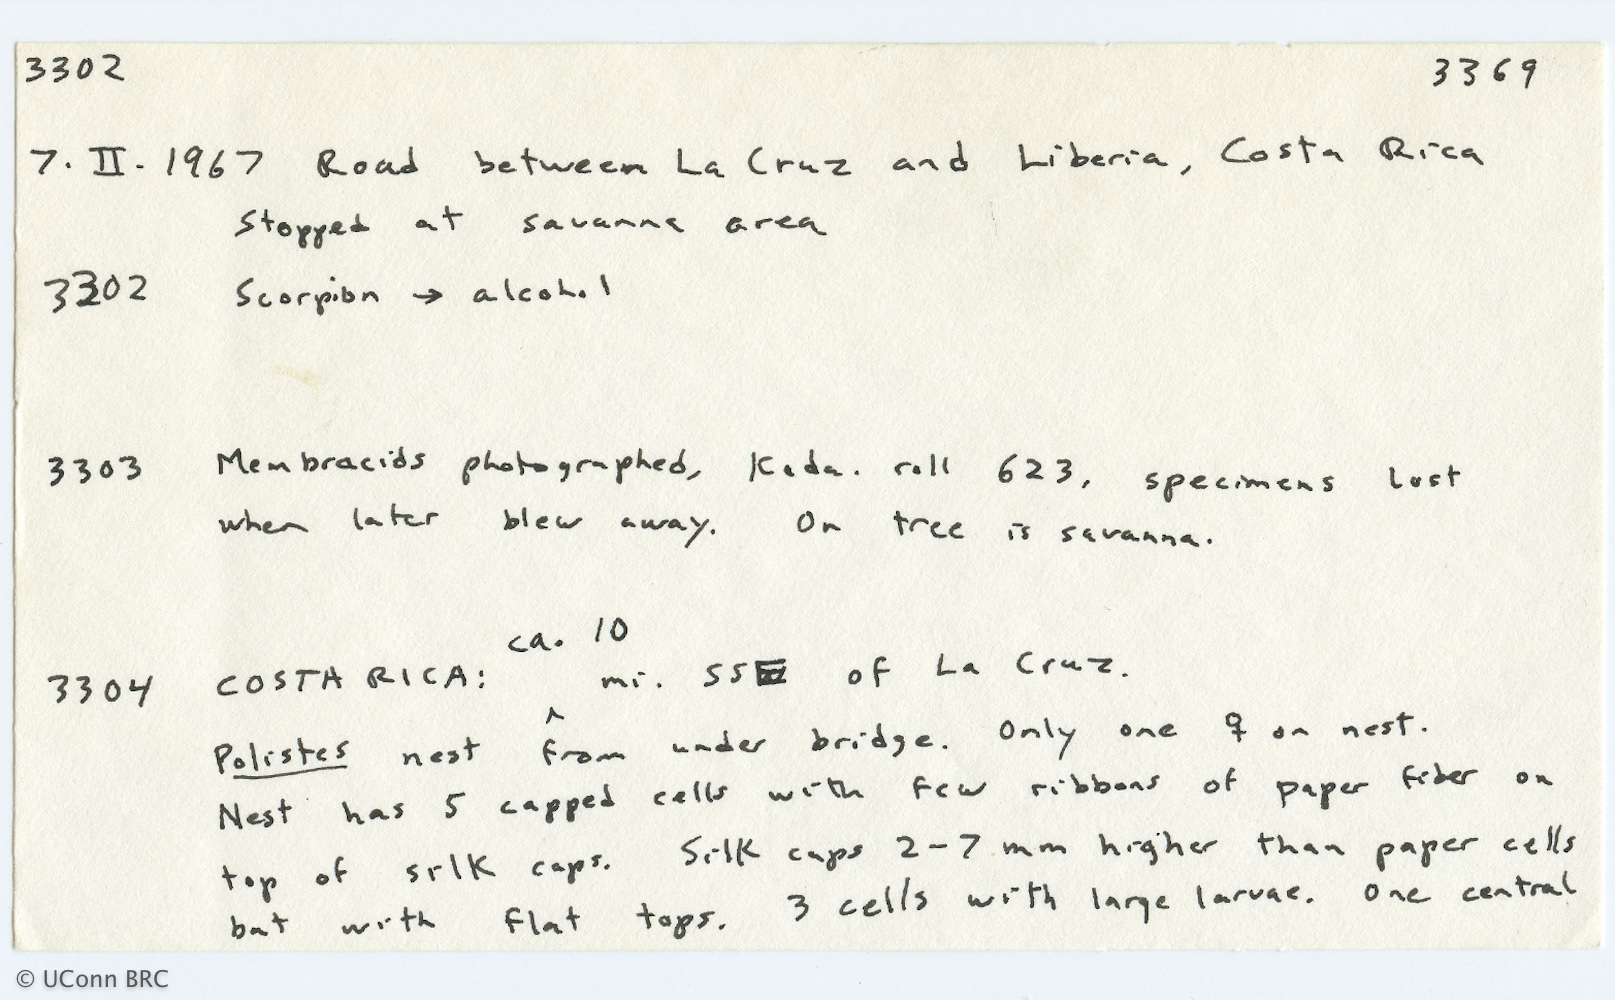 3302 3369
7. II. 1967 Road between La Cruz and Liberia, Costa Rica
Stopped at savanna area
3302 Scorpion → alcohol
3303 Membracids photographed, Koda. roll 623, specimens lost
when later blew away. On tree is savanna.
ca. 10
3304 COSTA RICA: ^ mi. SSE of La Cruz.
Polistes nest from under bridge. Only one ♀ on nest.
Nest has 5 capped cells with few ribbons of paper fiber on
top of silk caps. Silk caps 2-7 mm higher than paper cells
but with flat tops. 3 cells with large larvae. One central
© UConn BRC